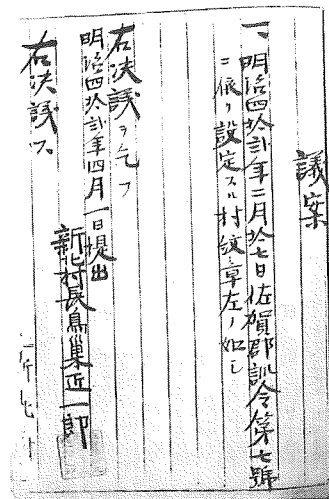 議案
一、明治四拾弐年二月拾七日佐賀郡訓令第七號
ニ依リ設定スル村紋章左ノ如シ
右決議ヲ乞フ
明治四拾弐年四月一日提出
新北村長鳥巣近一郎
右決議ス